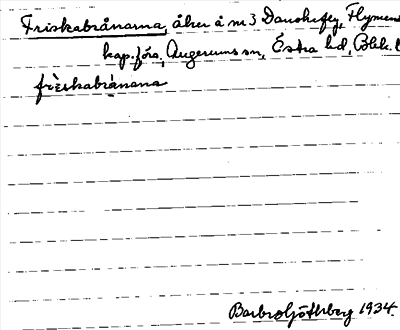 Friskabrånarna, åker å nr 3 Danskefly, Flymen
kap.förs, Augerums sn, Östra hd, Blek. l
friskabrånana
Barbro Götherberg 1934.